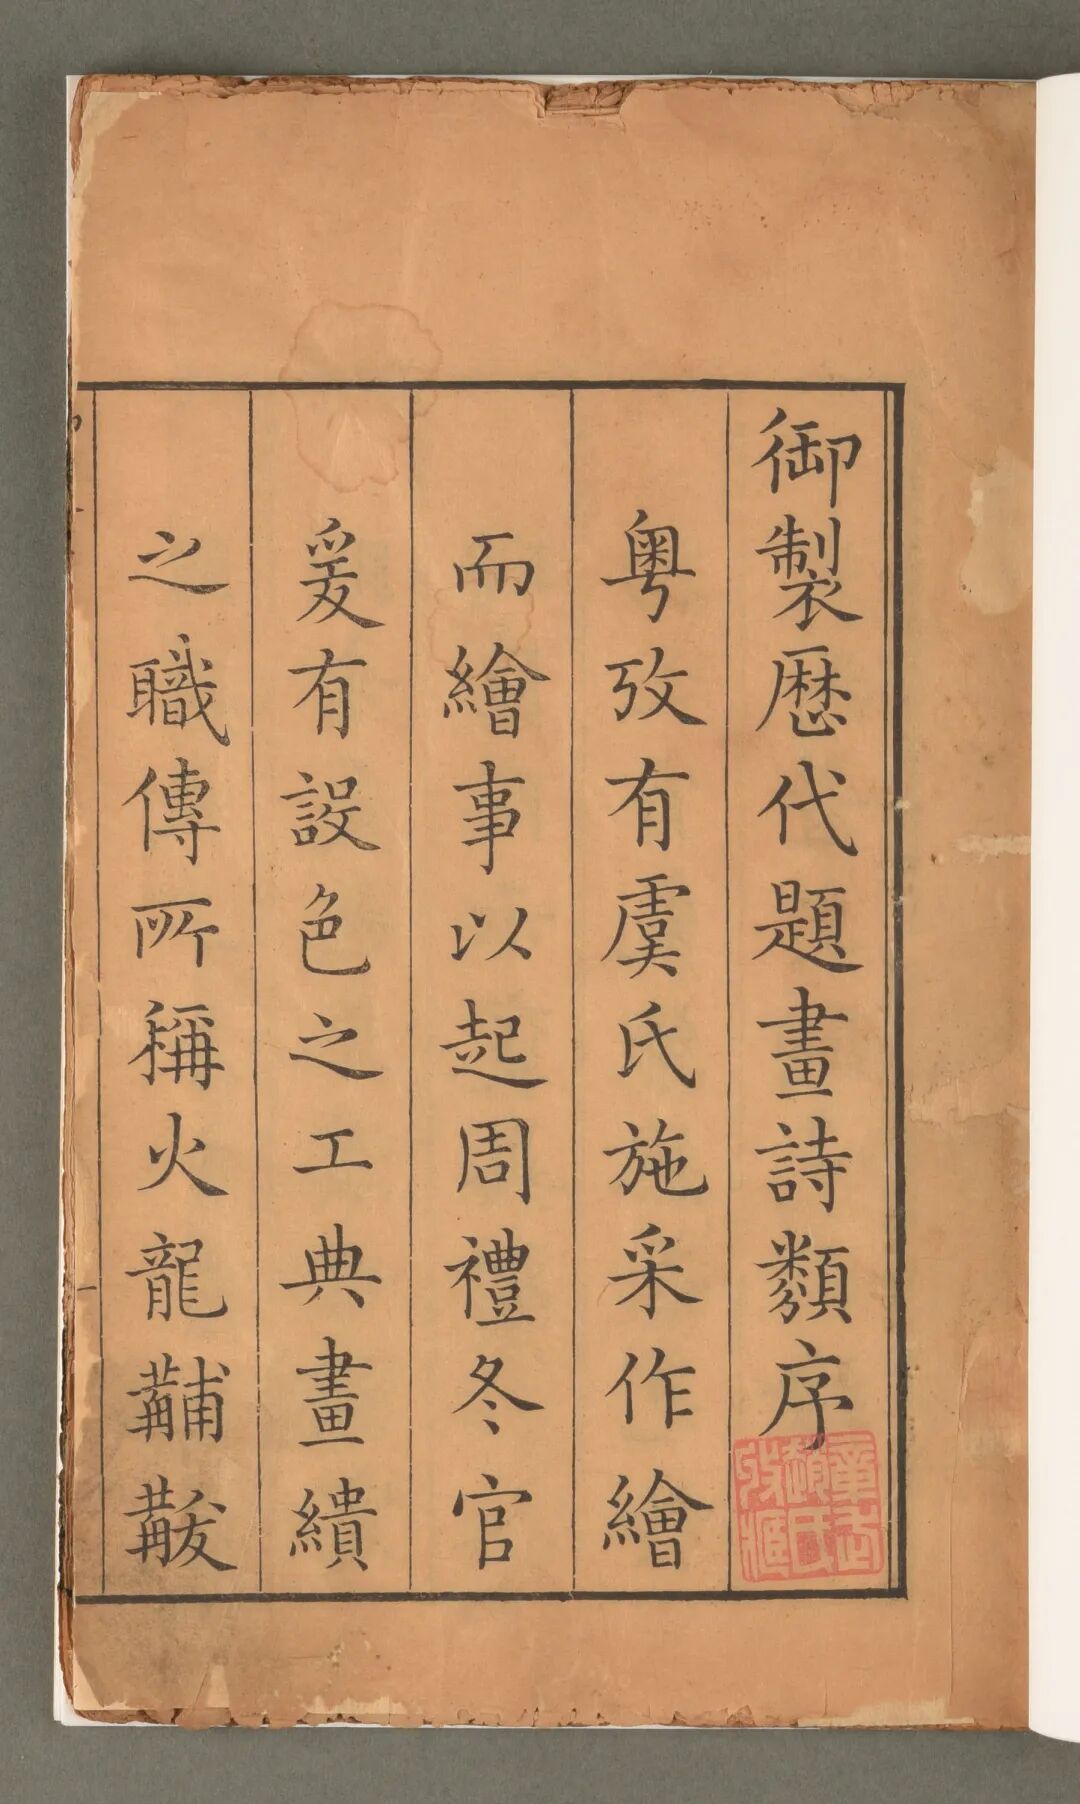 御製歷代題畫詩類序
粵攷有虞氏施采作繪
而繪事以起周禮冬官
爰有設色之工典畫繢
之職傳所稱火龍黼黻